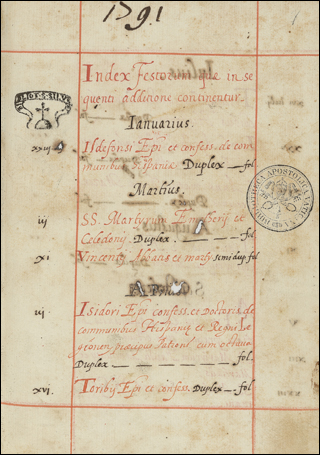 1591
Index Festorum que in se
quenti additione continentur.
Ianuarius.
xxiij
Ildefonsi Epi et confess. de com
munibus Hispaniæ Duplex — fol
Martius.
iij
SS. Martyrum Emeberij et
Celedonij. Duplex — fol
xi
Vincentij Abbatis et marty. semidup fol
iij
Isidori Epi confess. et Doctoris de
communibus Hispaniæ et Regni Le
præcipue cum octava
Duplex — fol.
xvi.
Toribij Epi et confess. Duplex — fol
BIBLIOTHECA APOSTOLICA VATICANA